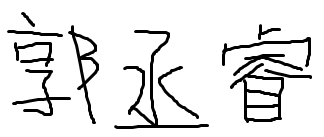 郭丞睿